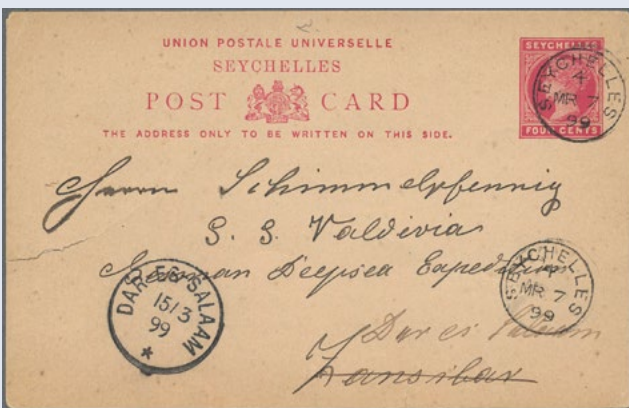 UNION POSTALE UNIVERSELLE
SEYCHELLES
POST CARD
THE ADDRESS ONLY TO BE WRITTEN ON THIS SIDE.
SEYCHELLES
FOUR CENTS
SEYCHELLES
A
MR 7
99
Herrn Schimmelpfennig
S. S. Valdivia
German Deepsea Expedition
Dar es Salaam
Zansibar
SEYCHELLES
A
MR 7
99
DAR-ES-SALAAM
15/3
99